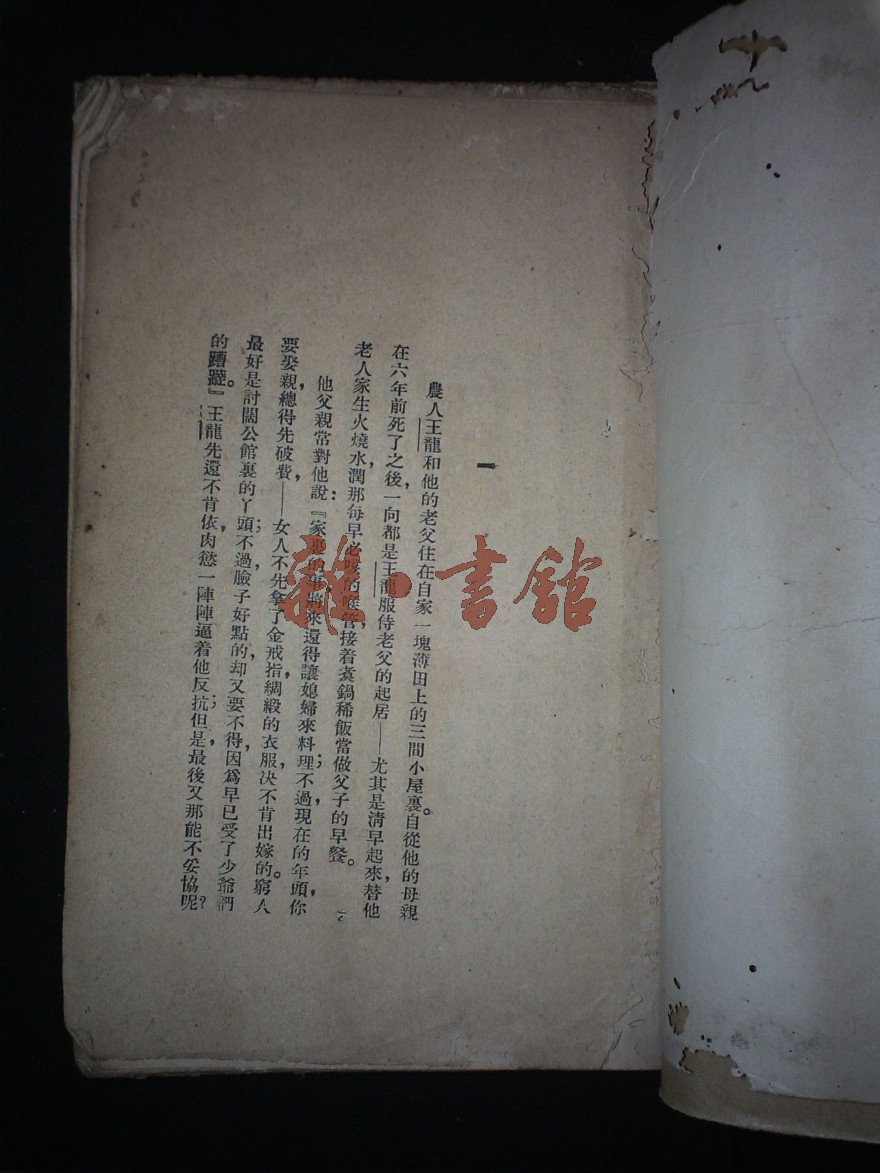 一
農人王龍和他的老父住在自家一塊薄田上的三間小屋裏。自從他的母親
在六年前死了之後，一向都是王龍服侍老父的起居——尤其是清早起來，替他
老人家生火燒水，潤那每早必咳的喉管，接着煑鍋稀飯當做父子的早餐。
他父親常對他說：『家裏的事將來還得讓媳婦來料理；不過現在的年頭，你
要娶親，總得先破費——女人不先拿了金戒指，綢緞的衣服，决不肯出嫁的。窮人
最好是討闊公館裏的丫頭；不過臉子好點的，却又要不得，因爲早已受了少爺們
的蹧蹋。』王龍先還不肯依，肉慾一陣陣逼着他反抗；但是，最後又那能不妥協呢？
龍·書館